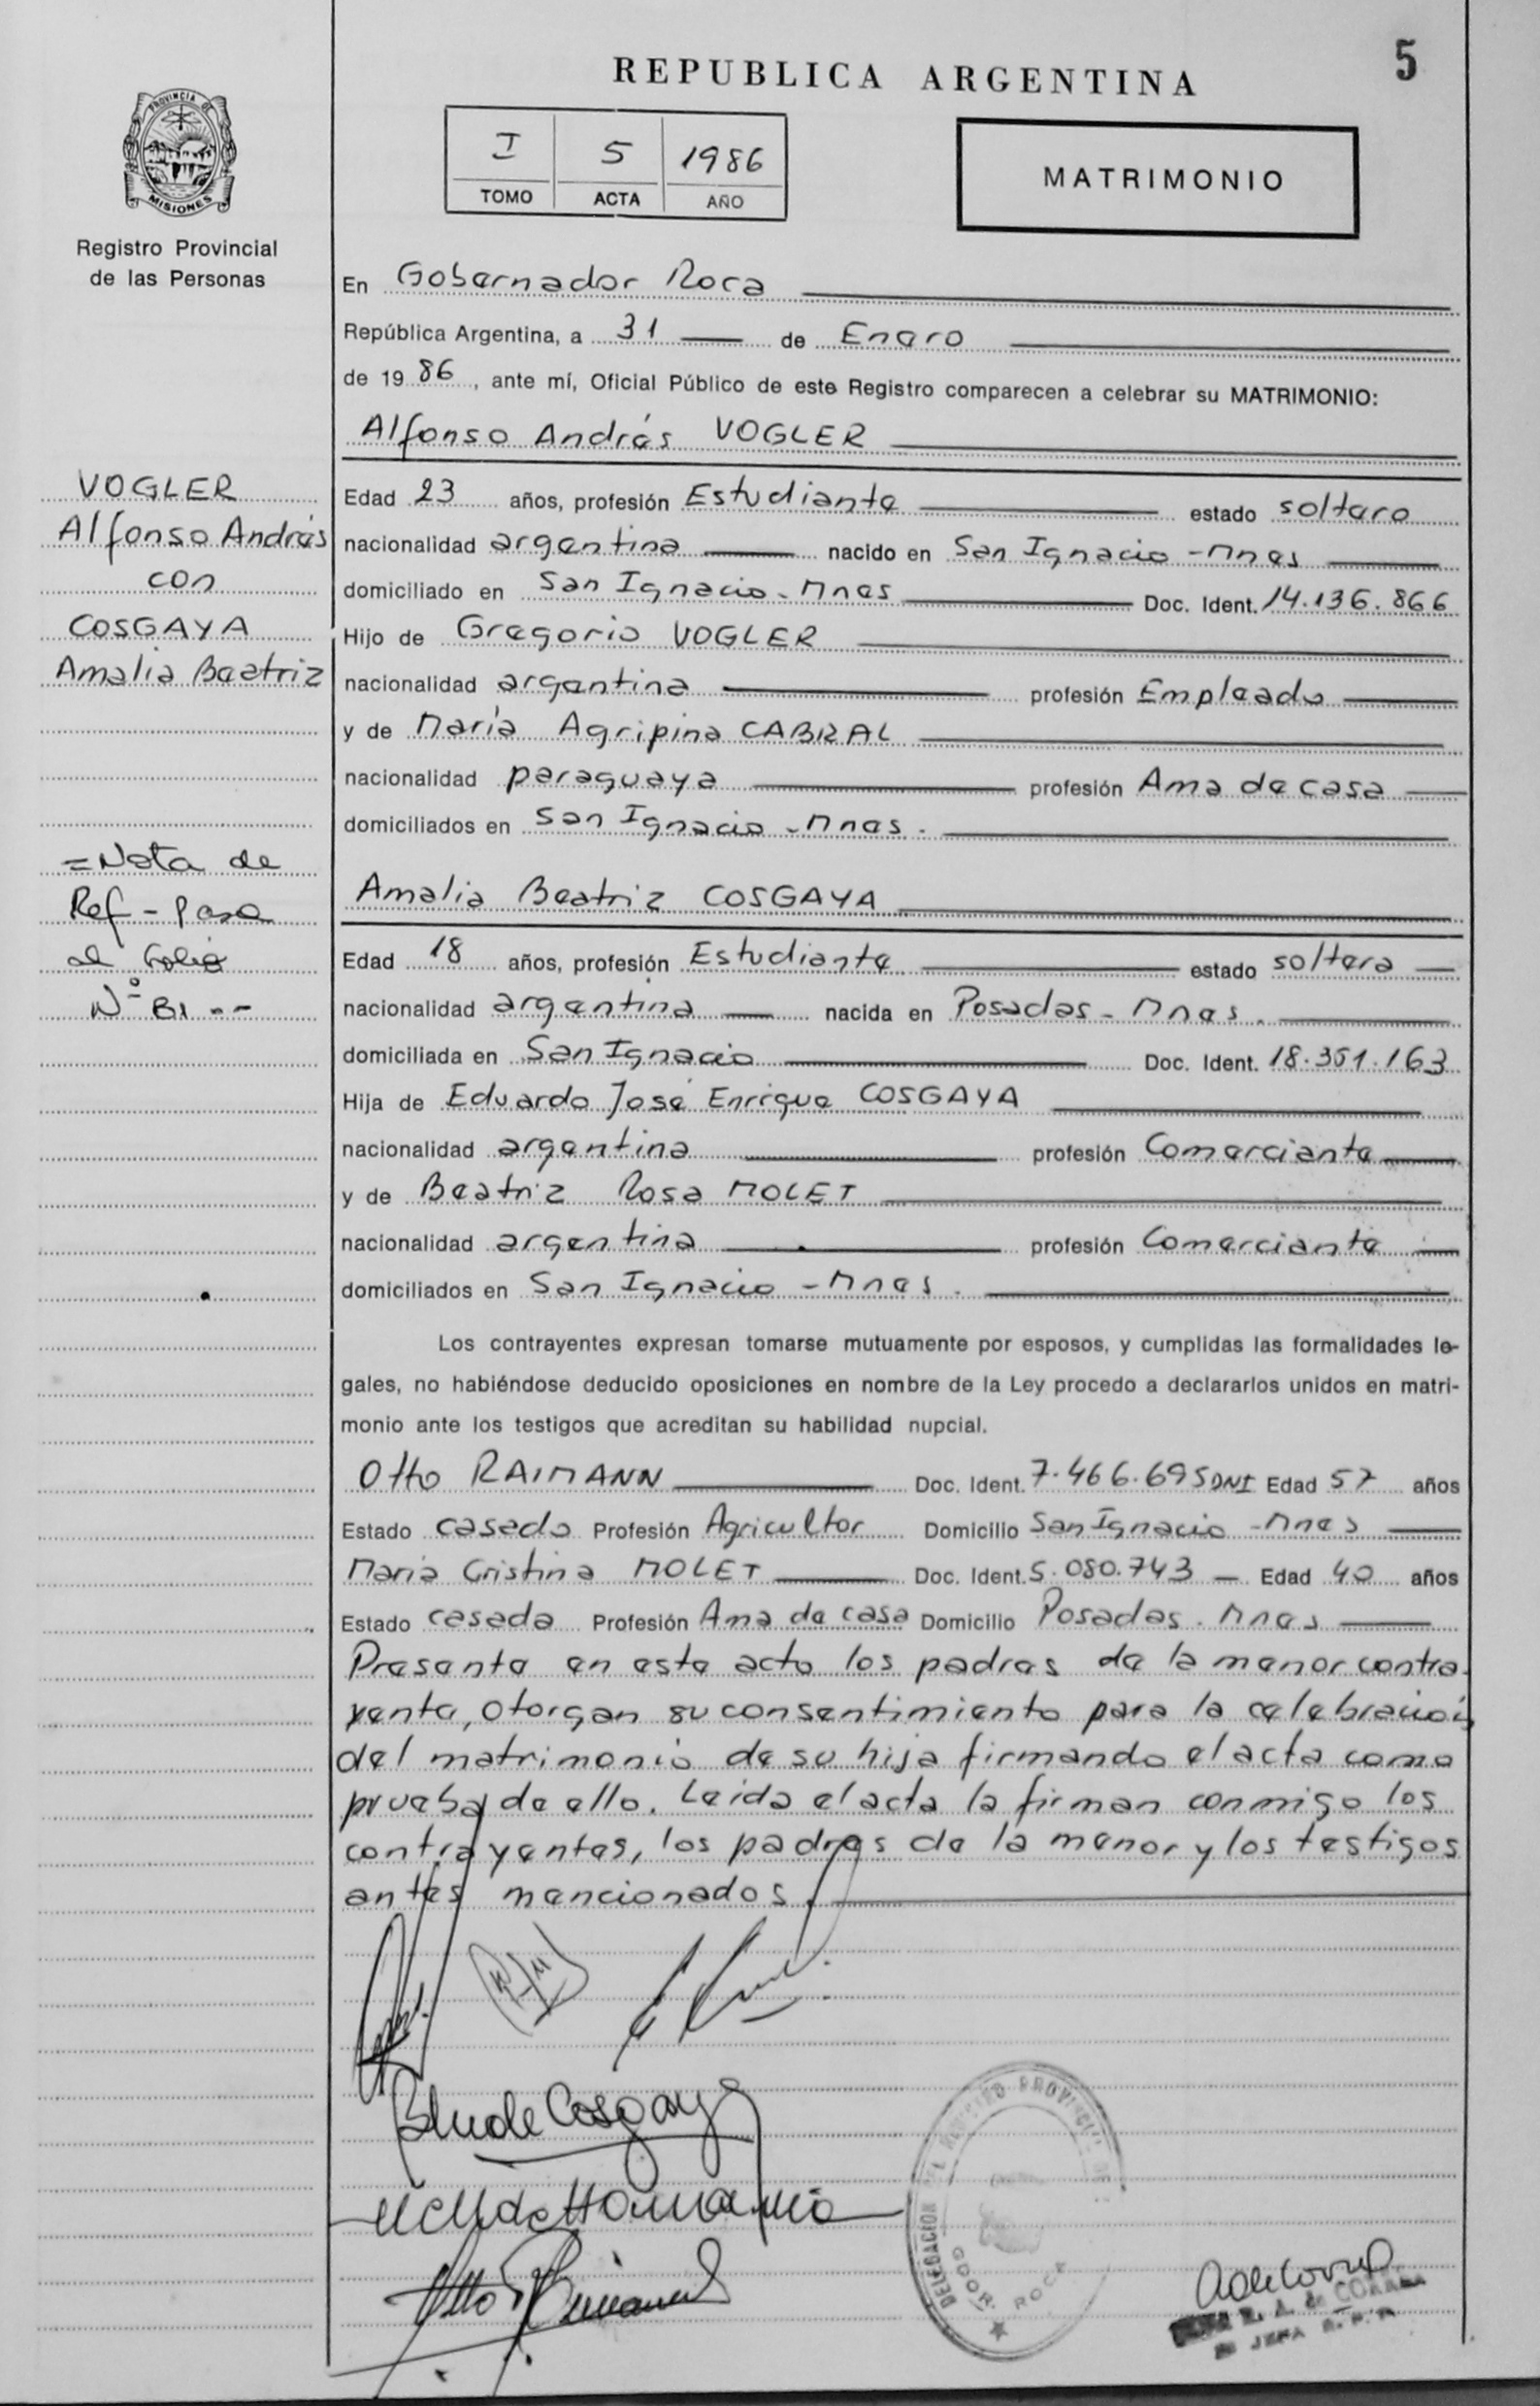 5
REPUBLICA ARGENTINA
PROVINCIA DE
MISIONES
Registro Provincial
de las Personas
I 5 1986
TOMO ACTA AÑO
MATRIMONIO
En Gobernador Roca
República Argentina, a 31 de Enero
de 1986, ante mí, Oficial Público de este Registro comparecen a celebrar su MATRIMONIO:
Alfonso Andrés VOGLER
VOGLER
Alfonso Andrés
con
COSGAYA
Amalia Beatriz
Edad 23 años, profesión Estudiante estado soltero
nacionalidad argentina nacido en San Ignacio - Mnes
domiciliado en San Ignacio - Mnes Doc. Ident. 14.136.866
Hijo de Gregorio VOGLER
nacionalidad argentina profesión Empleado
y de María Agripina CABRAL
nacionalidad paraguaya profesión Ama de casa
domiciliados en San Ignacio - Mnes.
= Nota de
Ref - Pasa
al Folio
Nº 81 --
Amalia Beatriz COSGAYA
Edad 18 años, profesión Estudiante estado soltera
nacionalidad argentina nacida en Posadas - Mnes.
domiciliada en San Ignacio Doc. Ident. 18.351.163
Hija de Eduardo José Enrique COSGAYA
nacionalidad argentina profesión Comerciante
y de Beatriz Rosa MOLET
nacionalidad argentina profesión Comerciante
domiciliados en San Ignacio - Mnes.
Los contrayentes expresan tomarse mutuamente por esposos, y cumplidas las formalidades le-
gales, no habiéndose deducido oposiciones en nombre de la Ley procedo a declararlos unidos en matri-
monio ante los testigos que acreditan su habilidad nupcial.
Otto RAIMANN Doc. Ident. 7.466.695 DNI Edad 57 años
Estado casado Profesión Agricultor Domicilio San Ignacio - Mnes
María Cristina MOLET Doc. Ident. 5.080.743 Edad 40 años
Estado casada Profesión Ama de casa Domicilio Posadas - Mnes
Presente en este acto los padres de la menor contra-
yente, otorgan su consentimiento para la celebración
del matrimonio de su hija firmando el acta como
prueba de ello. Leída el acta la firman conmigo los
contrayentes, los padres de la menor y los testigos
antes mencionados.
de Cosgaya
DELEGACION DEL REGISTRO PROVINCIAL DE
GDOR. ROCA
Otto
JEFA